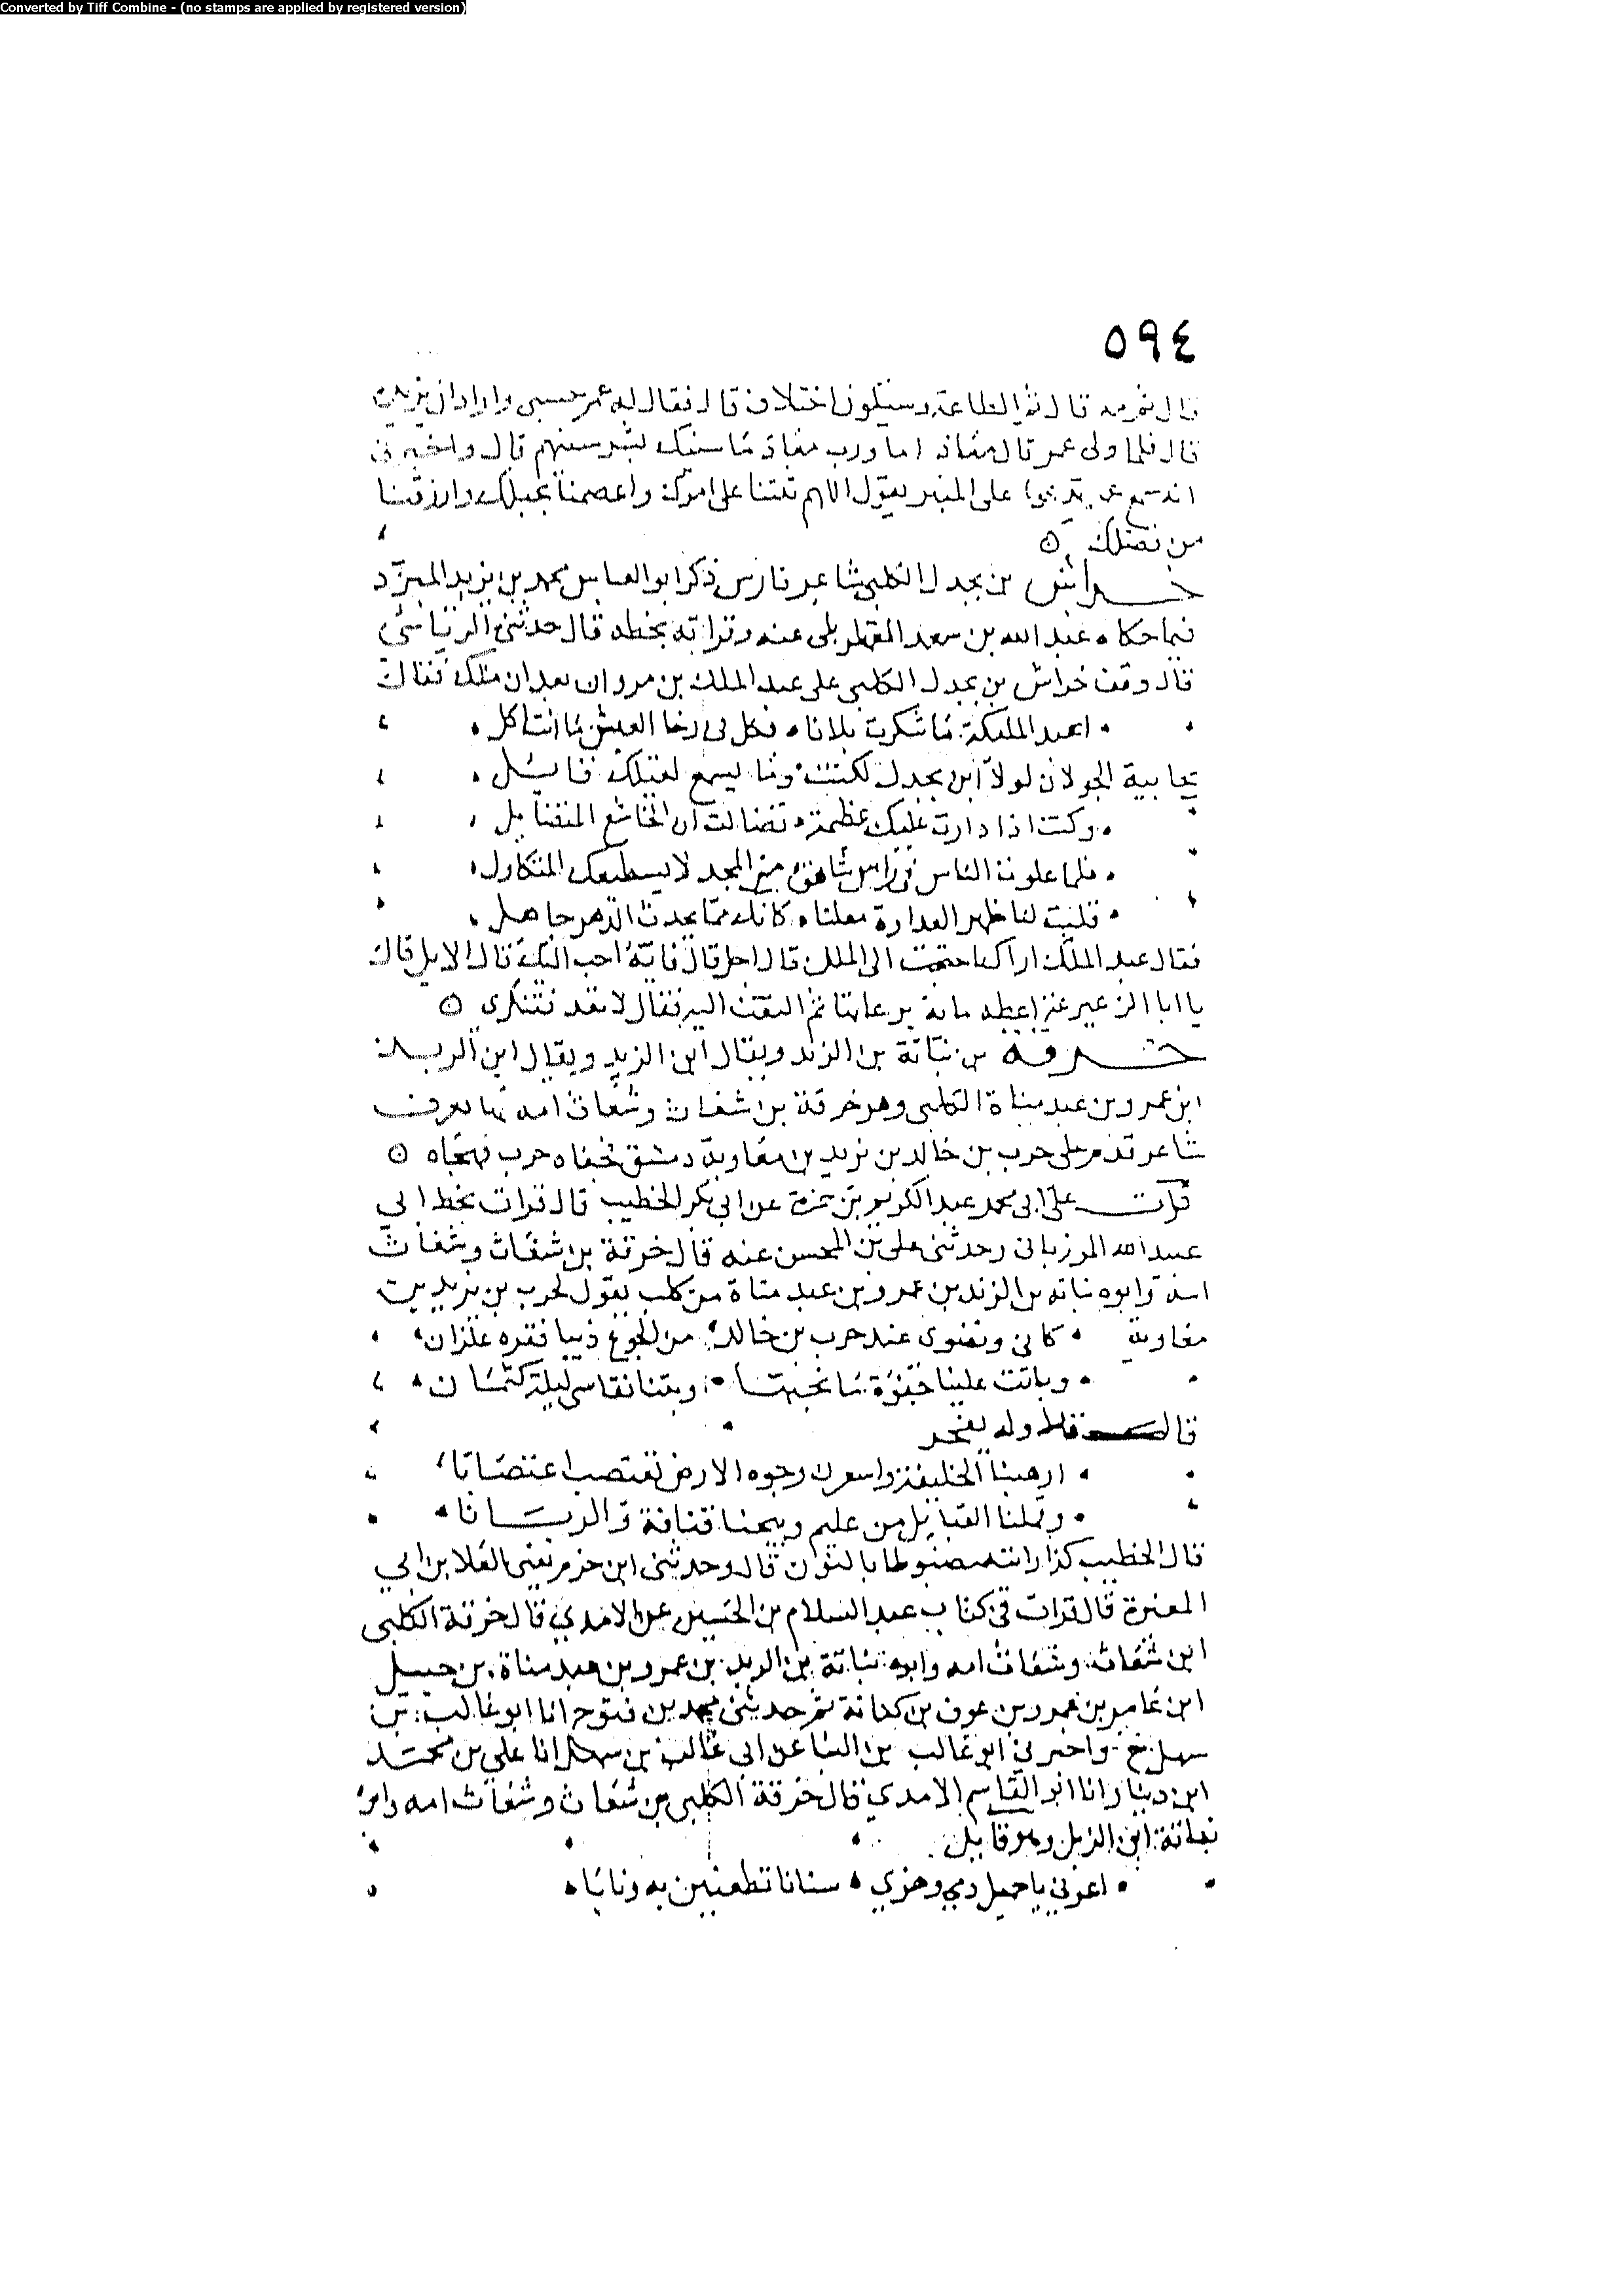 Converted by Tiff Combine - (no stamps are applied by registered version)
٥٩٤
قال ثم مه قال ثم الطاعة وستكون اختلاف قال فقال له عمر حسبي واراد ان يزيده
قال فلما ولى عمر قال معاذ اما ورب معاذ ما سنك بشر سنهم قال واخبرني
انه سمع عمر على المنبر يقول اللهم ثبتنا على امرك واعصمنا بحبلك وارزقنا
من فضلك ٥
خراش بن بجدل الكلبي شاعر فارس ذكر ابو العباس محمد بن يزيد المبرد
فيما حكاه عبد الله بن سعد القطربلي عنه وقراته بخطه قال حدثني الرياشي
قال وقف خراش بن بجدل الكلبي على عبد الملك بن مروان بعد ان ملك فقال
اعبد المليكة ما شكرت بلانا فكل في رخا العيش ما انت اكل
بجابية الجولان لولا ابن بجدل لكنت وما يسمع لقيلك قايل
وكنت اذا دارت عليك عظيمة تضالت ان الخاشع المتضايل
فلما علوت الناس في راس شاهق من المجد لا يسطيعك المتطاول
قلبت لنا ظهر العداوة معلنا كانك مما يحدث الدهر جاهل
فقال عبد الملك اراك احتجت الى المال قال اجل قال فايه احب اليك قال الابل قال
يا ابا الزعيزعة اعطه ماية برعاتها ثم التفت اليه فقال لا تعد فتنكرني ٥
خرقة بن نباتة بن الزند ويقال ابن الزيد ويقال ابن الربـ
ابن عمرو بن عبد مناة الكلبي وهو خرقة بن شغاث وشغاث امه بها يعرف
شاعر قدم على حرب بن خالد بن يزيد بن معاوية دمشق فجفاه حرب فهجاه ٥
قرات على ابي محمد عبد الكريم بن حمزة عن ابي بكر الخطيب قال قرات بخط ابي
عبيد الله المرزباني وحدثني علي بن المحسن عنه قال خرقة بن شغاث وشغاث
امه وابوه نباته بن الزند بن عمرو بن عبد مناة من كلب يقول لحرب بن يزيد بن
معاوية كاني ونضوي عند حرب بن خالد من الجوع ذيبا قفره علزان
وباتت علينا جفوة ما نحبها وبتنا نقاسي ليلة كثمان
قال وله يفخر
ارهبنا الخليفة واسعرت وجوه الارض تغتصب اغتصابا
وقلنا القبايل من عليم وبيحنا قنافة والربانا
قال الخطيب كذا رايته مضبوطا بالنون قال وحدثني ابن حزم يعني العلا بن ابي
المغيرة قال قرات في كتاب عبد السلام بن الحسين عن الامدي قال خرقة الكلبي
ابن شغاث وشغاث امه وابوه نباتة بن الزبد بن عمرو بن عبد مناة بن حبيل
ابن عامر بن عمرو بن عوف بن كنانة ثم حدثني محمد بن فتوح انا ابو غالب بن
سهل ح واخبرني ابو غالب بن البنا عن ابي غالب بن سهل انا علي بن محمد
ابن دينار انا ابو القاسم الامدي قال خرقة الكلبي بن شغاث وشغاث امه وابوه
نباتة ابن الزبل وهو قايل
اعوني يا جميل دمي وهزي سنانا تطعنين به ونابا